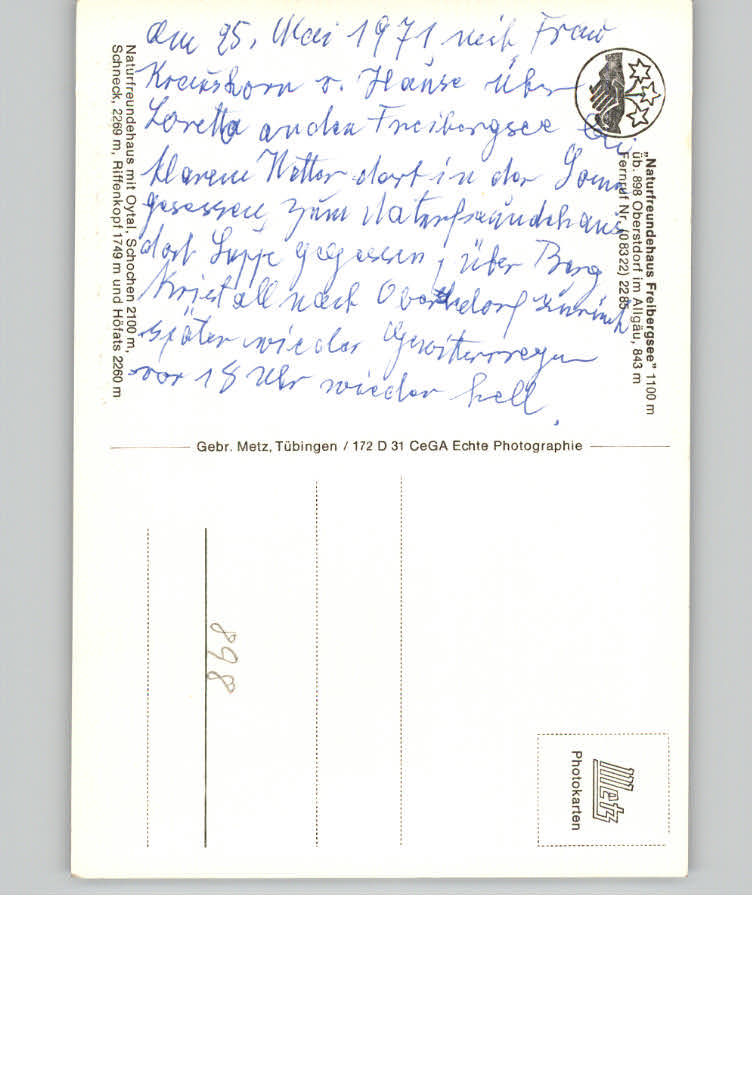 Am 25. Mai 1971 mit Frau
v. Hause über
Loretto an den Freibergsee bei
klarem Wetter dort in der Sonne
gesessen, zum Naturfreundehaus
dort Suppe gegessen, über Berg
Kristall nach Oberstdorf zurück
später wieder Gewitterregen
vor 18 Uhr wieder hell.
"Naturfreundehaus Freibergsee" 1100 m
üb. 898 Oberstdorf im Allgäu, 843 m
Fernruf Nr. (08322) 2285
Naturfreundehaus mit Oytal, Schochen 2100 m,
Schneck, 2269 m, Riffenkopf 1749 m und Höfats 2260 m
Gebr. Metz, Tübingen / 172 D 31 CeGA Echte Photographie
898
Metz
Photokarten